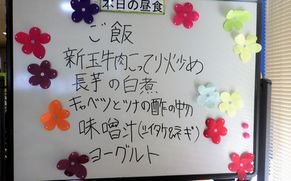 本日の昼食
ご飯
新玉牛肉こってり炒め
長芋の白煮
キャベツとツナの酢の物
味噌汁(シイタケ&ネギ)
ヨーグルト